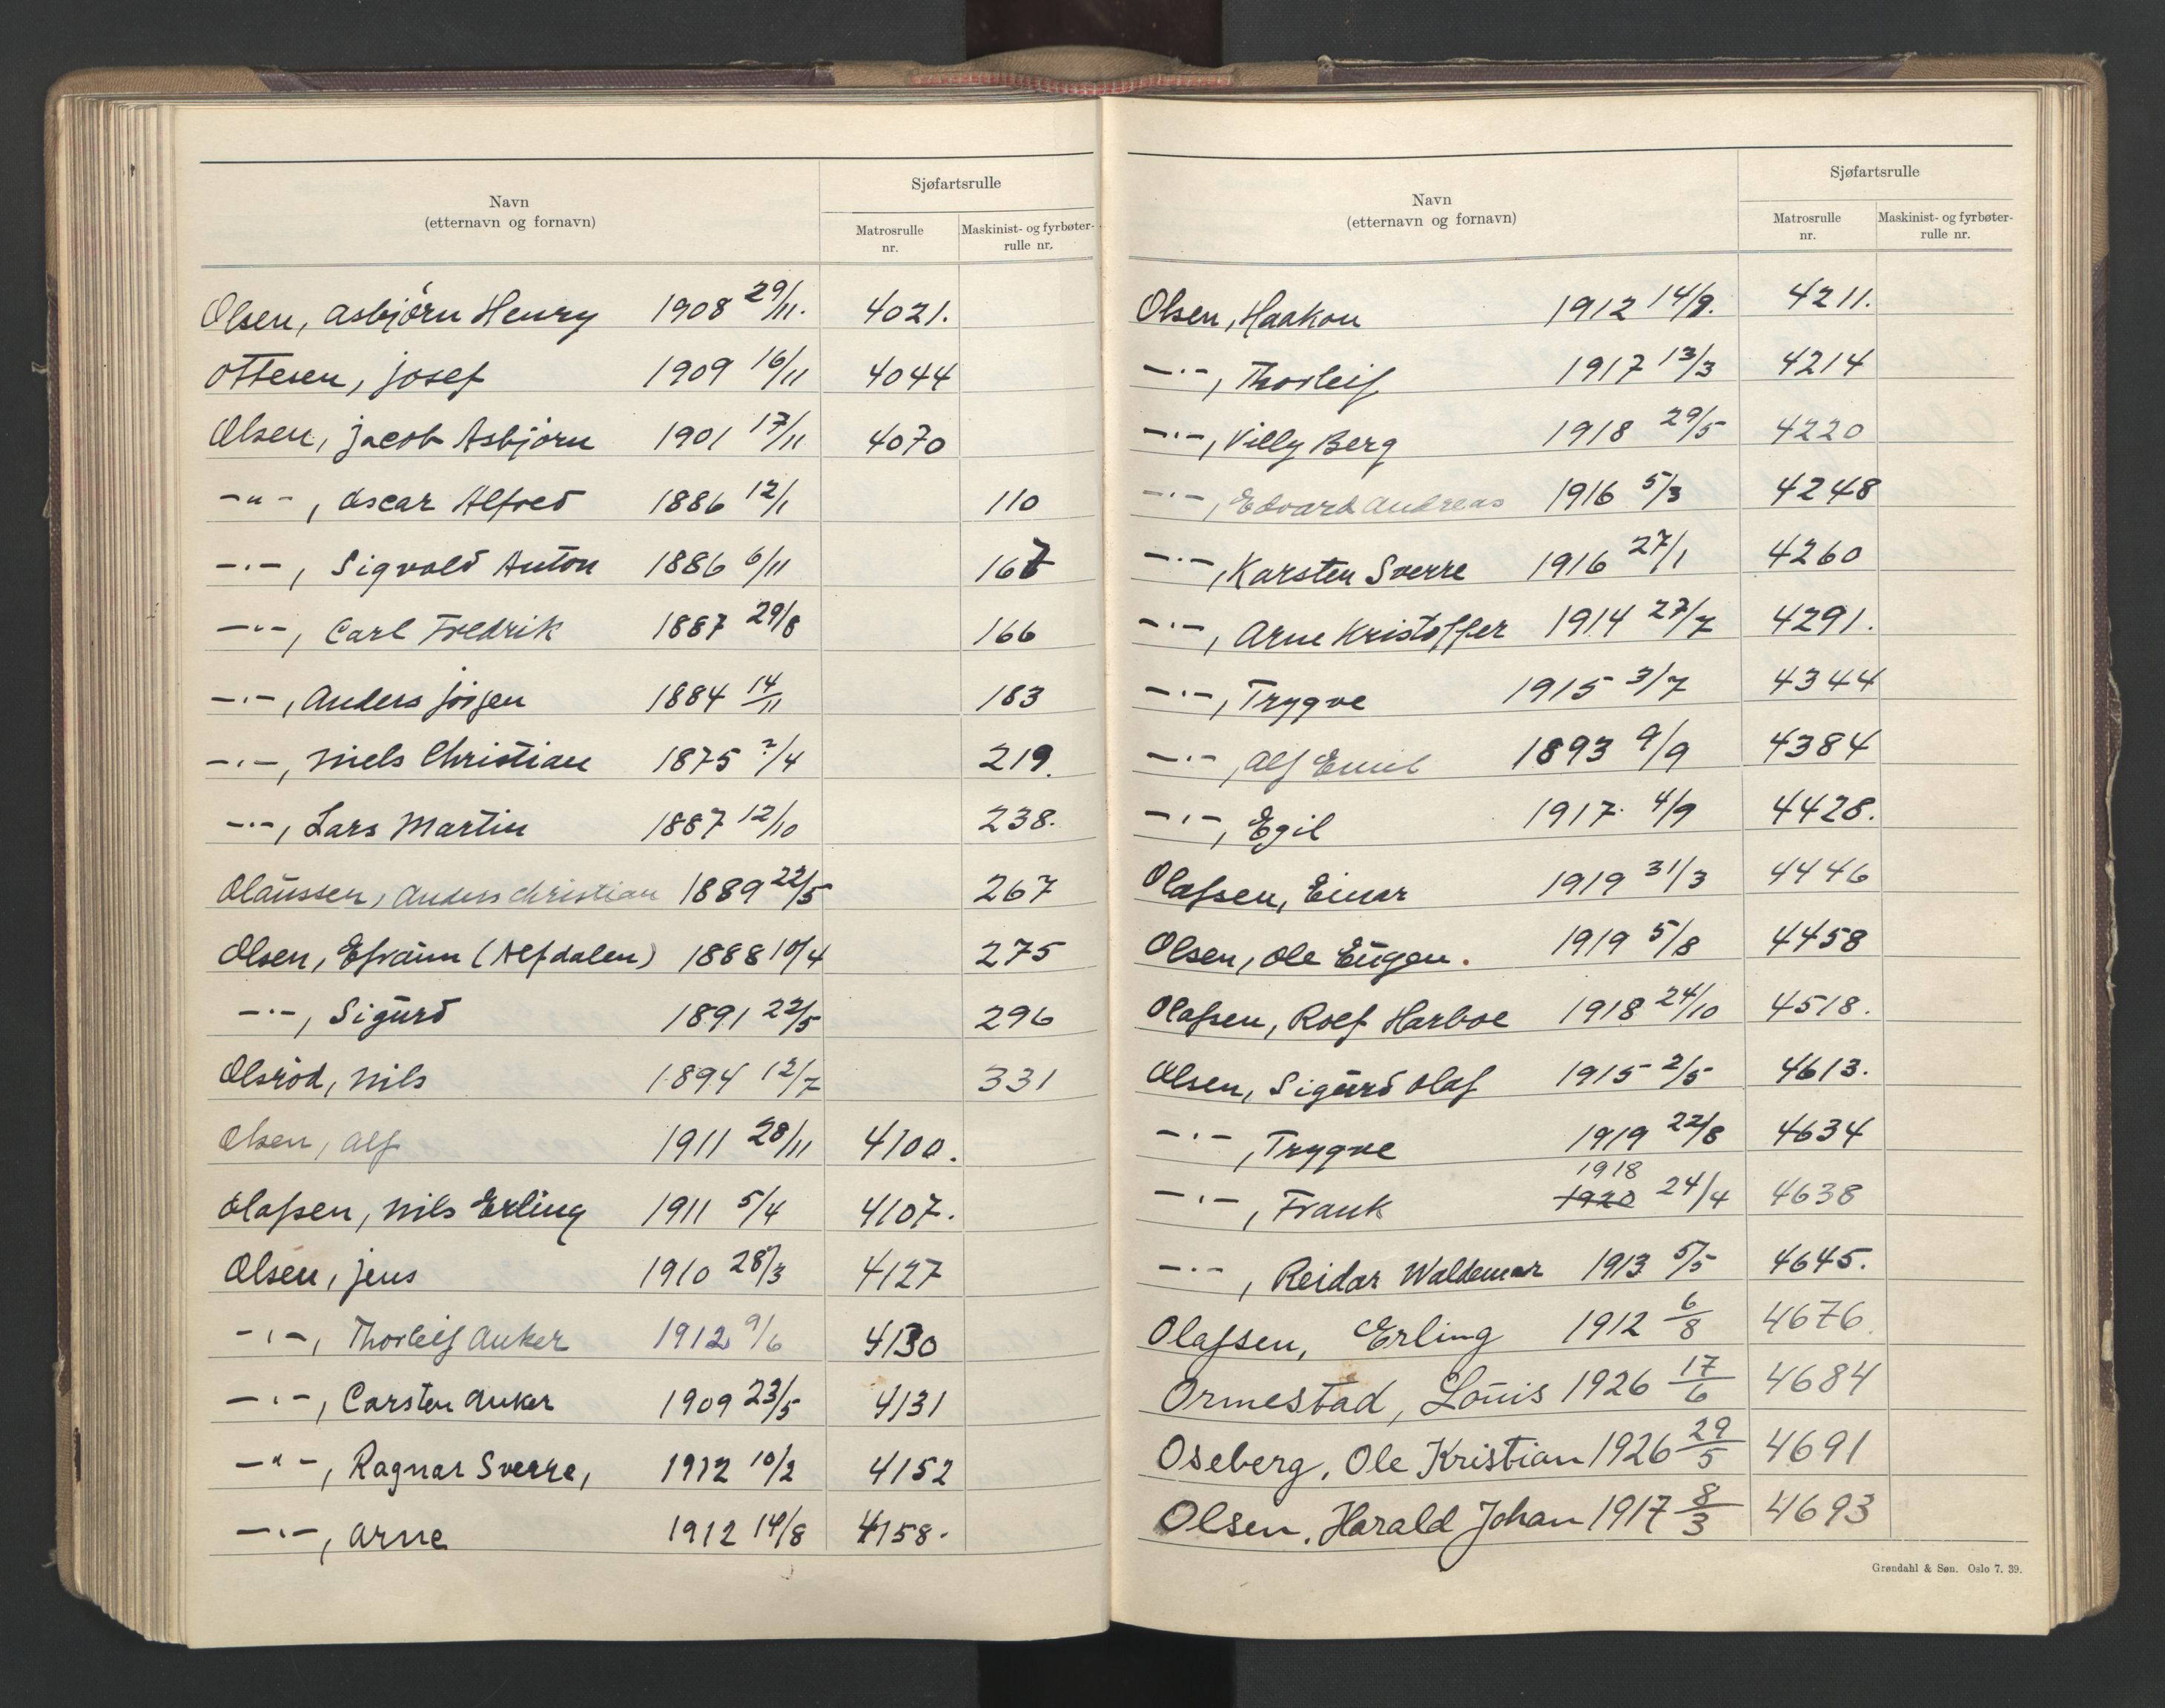 Navn
(etternavn og fornavn)
Sjøfartsrulle
Matrosrulle
nr.
Maskinist- og fyrbøter-
rulle nr.
Olsen, Asbjörn Henry 1908 29/11. 4021.
Ottesen, Josef 1909 16/11 4044
Olsen, Jacob Asbjörn 1901 17/11 4070
-"-, Oscar Alfred 1886 12/1 110
-"-, Sigvald Anton 1886 6/11 167
-"-, Carl Fredrik 1887 29/8 166
-"-, Anders Jörgen 1884 14/11 183
-"-, Niels Christian 1875 ?/4 219.
-"-, Lars Martin 1887 12/10 238.
Olaussen, Anders Christian 1889 22/5 267
Olsen, Efraim (Alfdalen) 1888 10/4 275
-"-, Sigurd 1891 22/5 296
Olsröd, Nils 1894 12/7 331
Olsen, Alf 1911 28/11 4100.
Olafsen, Nils Erling 1911 5/4 4107.
Olsen, Jens 1910 28/3 4127
-"-, Thorleif Anker 1912 9/6 4130
-"-, Carsten Anker 1909 23/5 4131
-"-, Ragnar Sverre, 1912 10/2 4152
-"-, Arne 1912 14/8 4158.
Navn
(etternavn og fornavn)
Sjøfartsrulle
Matrosrulle
nr.
Maskinist- og fyrbøter-
rulle nr.
Olsen, Haakon 1912 14/9. 4211.
-"-, Thorleif 1917 13/3 4214
-"-, Villy Berg 1918 29/5 4220
-"-, Edvard Andreas 1916 5/3 4248
-"-, Karsten Sverre 1916 27/1 4260
-"-, Arne Kristoffer 1914 27/7 4291.
-"-, Trygve 1915 3/7 4344
-"-, Alf Emil 1893 9/9 4384
-"-, Egil 1917. 4/9 4428.
Olafsen, Einar 1919 31/3 4446
Olsen, Ole Eugen. 1919 5/8 4458
Olafsen, Rolf Harboe 1918 24/10 4518.
Olsen, Sigurd Olaf 1915 2/5 4613.
-"-, Trygve 1919 22/8 4634
1918
-"-, Frank 1920 24/4 4638
-"-, Reidar Waldemar 1913 5/5 4645.
Olafsen, Erling 1912 6/8 4676
Ormestad, Louis 1926 17/6 4684
Oseberg, Ole Kristian 1926 29/5 4691
Olsen, Harald Johan 1917 8/3 4693
Grøndahl & Søn. Oslo 7. 39.